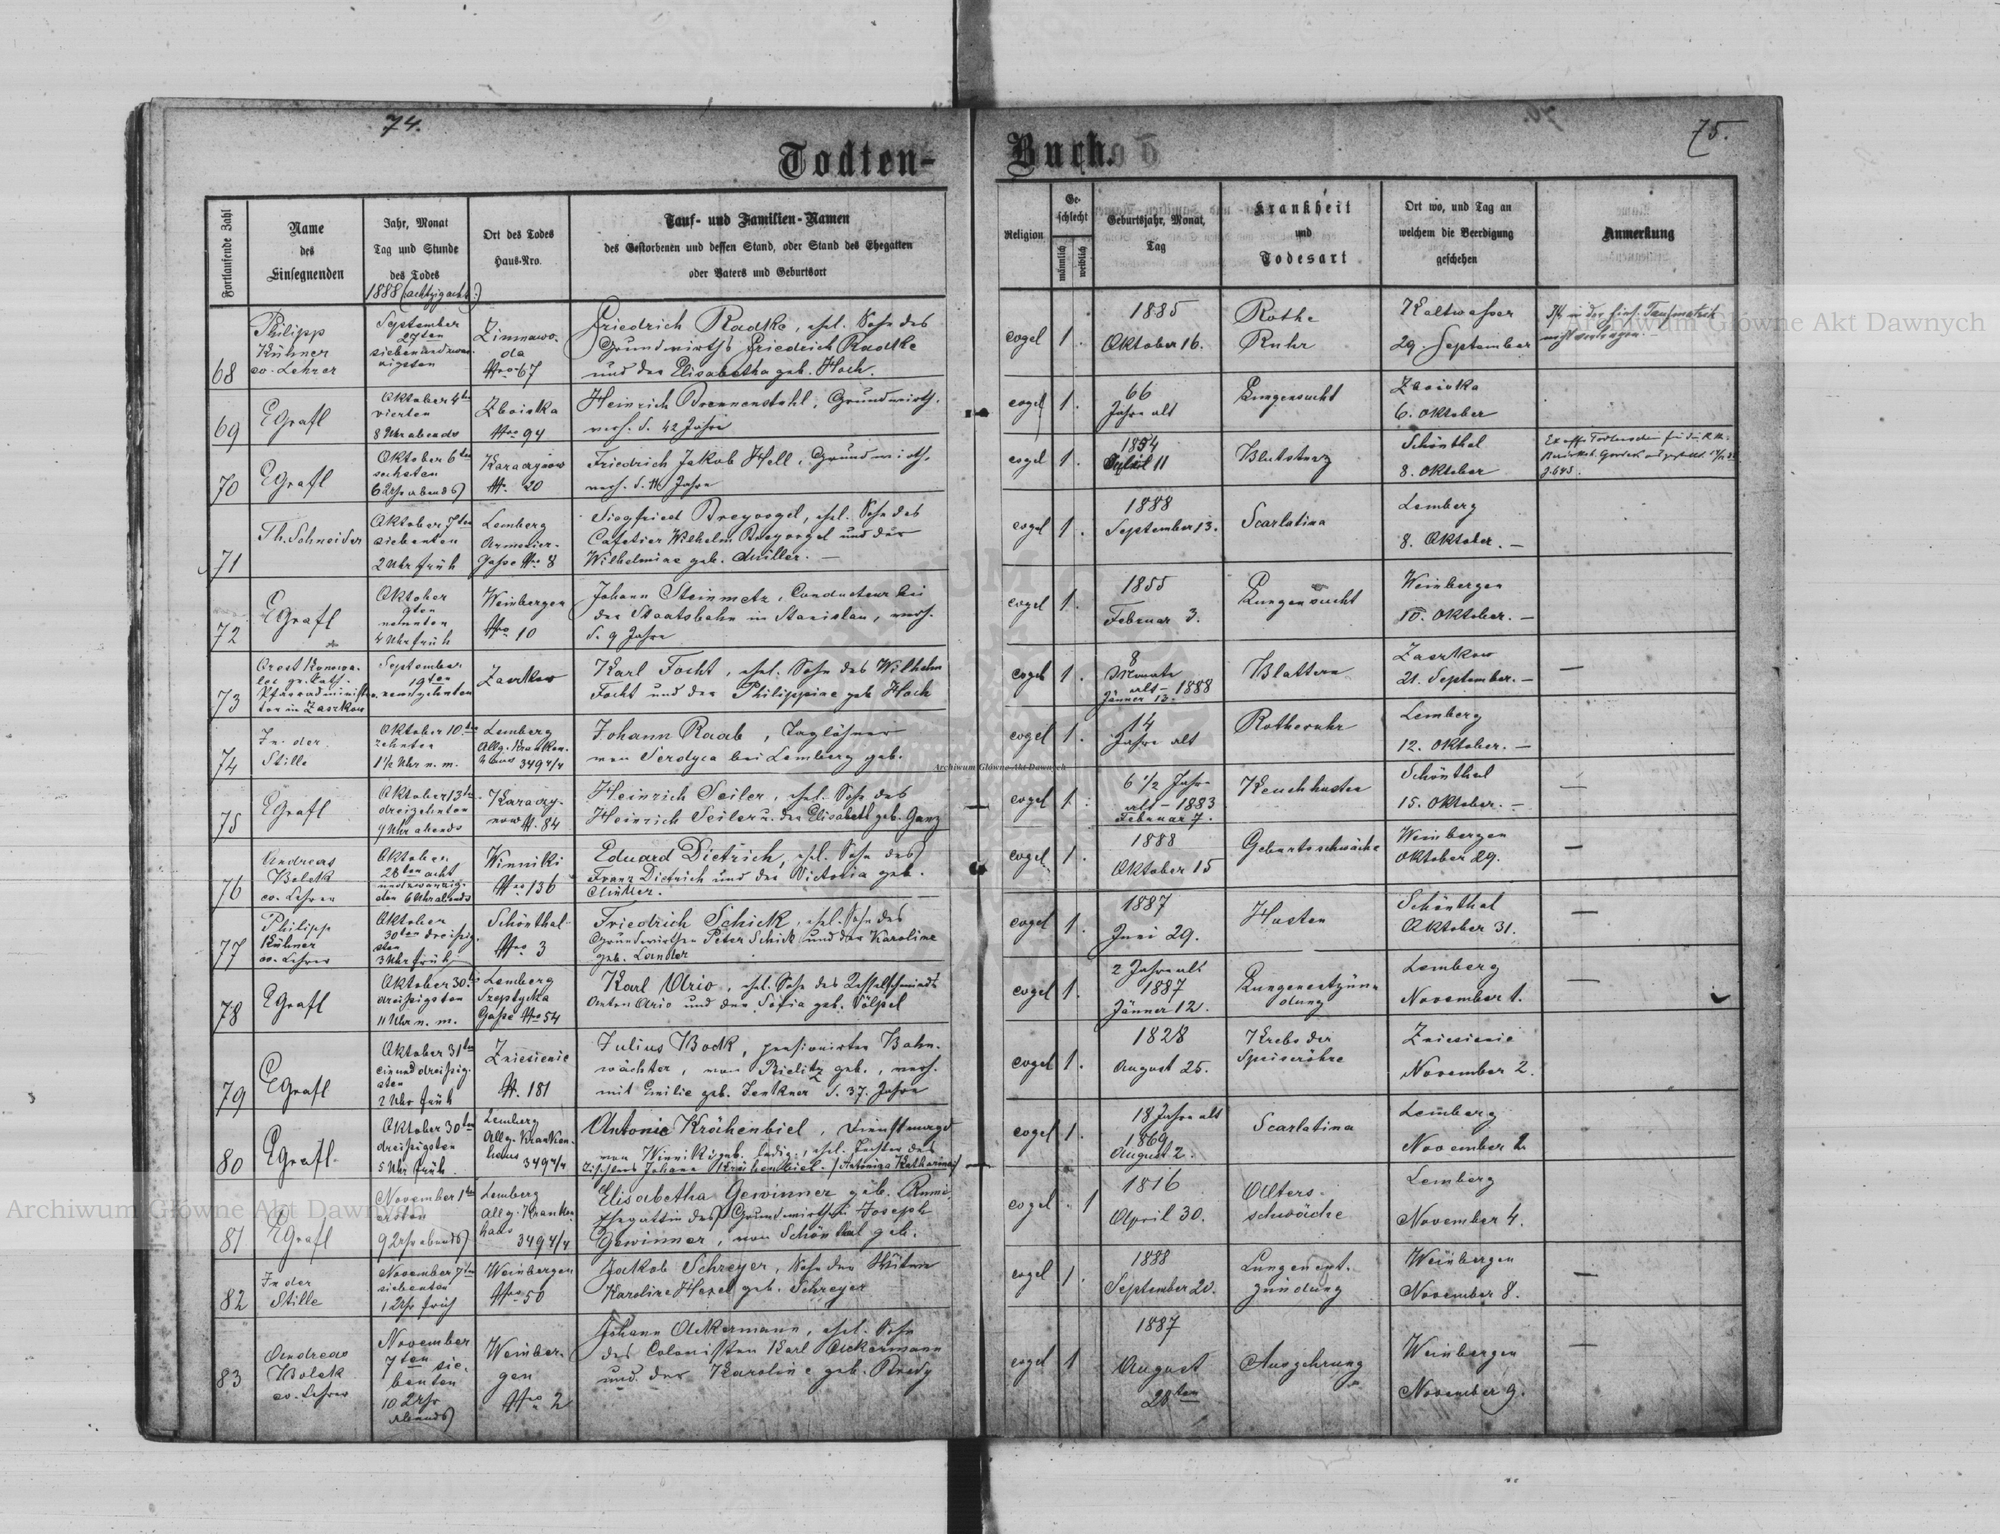 74.
75.
Todten-
Buch.
Fortlaufende Zahl
Name
des
Einsegnenden
Jahr, Monat
Tag und Stunde
des Todes
1888 (achtzigacht)
Ort des Todes
Haus-Nro.
Tauf- und Familien-Namen
des Gestorbenen und dessen Stand, oder Stand des Ehegatten
oder Vaters und Geburtsort
Religion
Ge-
schlecht
männlich
weiblich
Geburtsjahr, Monat,
Tag
Krankheit
und
Todesart
Ort wo, und Tag an
welchem die Beerdigung
geschehen
Anmerkung
68
Philipp
Kühner
ev. Lehrer
September
27ten
Zimnawo-
da
Nro 67
Friedrich Radke, ehel. Sohn des
Grundwirths Friedrich Radtke
und der Elisabetha geb. Hoch.
evgel
1.
1885
Oktober 16.
Rothe
Ruhr
Kaltwasser
29. September
69
EGrafl
Oktober 4ten
vierten
8 Uhr abends
Zboiska
Nro 94
Heinrich Brennenstuhl, Grundwirth.
verh. d. 42 Jahre
evgel
1.
66
Jahre alt
Lungensucht
Zboiska
6. Oktober
70
EGrafl
Oktober 6ten
sechsten
6 Uhr abends
N. 20
Friedrich Jakob Hell, Grundwirth,
evgel
1.
11
Blutsturz
Schönthal
8. Oktober
71
Th. Schneider
Oktober 7ten
siebenten
2 Uhr früh
Lemberg
Armenier-
Gasse Nro 8
Siegfried Breyvogel, ehel. Sohn des
Cafetier Wilhelm Breyvogel und der
Wilhelmine geb. Müller. —
evgel
1.
1888
September 13.
Scarlatina
Lemberg
8. Oktober. —
72
EGrafl
Oktober
9ten
neunten
4 Uhr früh
Weinbergen
Nro 10
Johann Steinmetz, Conducteur bei
der Staatsbahn in Stanislau, verh.
d. 9 Jahre
evgel
1.
1855
Februar 3.
Lungensucht
Weinbergen
10. Oktober. —
73
gr. kath.
tor in Zaszkow
September
19ten
neunzehnten
Zaszkow
Karl Focht, ehel. Sohn des Wilhelm
Focht und der Philippine geb. Hoch
evgel
1.
8
Monate
alt – 1888
Jänner 13.
Blattern
Zaszkow
21. September. —
—
74
In der
Stille
Oktober 10ten
zehnten
1½ Uhr n. m.
Lemberg
Allg. Kranken-
haus 349 4/4
Johann Raab, Taglöhner
von Serdyca bei Lemberg geb.
evgel
1.
14
Jahre alt
Rotheruhr
Lemberg
12. Oktober. —
75
EGrafl
Oktober 13ten
dreizehnten
Uhr abends
N. 84
Heinrich Seiler, ehel. Sohn des
Heinrich Seiler u. der Elisabeth geb. Ganz
evgel
1.
6 1/2 Jahre
alt – 1883
Februar 7.
Keuchhusten
Schönthal
15. Oktober. —
—
76
Andreas
Bolek
ev. Lehrer
Oktober
28ten acht
undzwanzig-
sten 6 Uhr abends
Winniki
Nro 136
Eduard Dietrich, ehel. Sohn des
Franz Dietrich und der Victoria geb.
Müller.
evgel
1.
1888
Oktober 15
Geburtsschwäche
Weinbergen
Oktober 29.
—
77
Philipp
Kühner
ev. Lehrer
Oktober
30ten dreißig-
sten
3 Uhr früh
Schönthal
Nro 3
Friedrich Schick, ehel. Sohn des
Grundwirthen Peter Schick und der Karoline
geb. Lander
evgel
1.
1887
Juni 29.
Husten
Schönthal
Oktober 31.
—
78
EGrafl
Oktober 30ten
dreißigsten
11 Uhr n. m.
Lemberg
Szeptycka
Gasse Nro 54
Karl Ario, ehel. Sohn des Kesselschmieds
Anton Ario und der Sofia geb. Sölpel
evgel
1.
2 Jahre alt
1887
Jänner 12.
Lungenentzün-
dung
Lemberg
November 1.
—
79
EGrafl
Oktober 31ten
einunddreißig-
sten
2 Uhr früh
Zniesienie
N. 181
Julius Bock, pensionirter Bahn-
wächter, von Bielitz geb., verh.
mit Emilie geb. Jenkner d. 37. Jahre
evgel
1.
1828
August 25.
Krebs der
Speiseröhre
Zniesienie
November 2.
80
EGrafl.
Oktober 30ten
dreißigsten
5 Uhr früh
Lemberg
Allg. Kranken-
haus
349 4/4
Antonie Krähenbiel, Dienstmagd
von Winniki geb. ledig, ehel. Tochter des
Tischlers Johann Krähenbiel. (Antonina Katharina)
evgel
1.
18 Jahre alt
1869
August 2.
Scarlatina
Lemberg
November 2
81
EGrafl
November 1ten
ersten
9 Uhr abends
Lemberg
Allg. Kranken-
haus
349 4/4
Elisabetha Gewinner geb.
Ehegattin des Grundwirthen Joseph
Gewinner, von Schönthal geb.
evgel
1
1816
April 30.
Alters-
schwäche
Lemberg
November 4.
82
In der
Stille
November 7ten
siebenten
1 Uhr früh
Weinbergen
Nro 50
Jakob Schreyer, Sohn der Witwe
Karoline Hexel geb. Schreyer
evgel
1.
1888
September 20.
Lungenent-
zündung
Weinbergen
November 8.
—
83
Andreas
Bolek
ev. Lehrer
November
7ten sie-
benten
10 Uhr
Abends
Weinber-
gen
Nro 2
Johann Ackermann, ehel. Sohn
des Colonisten Karl Ackermann
und der Karoline geb. Bredy
evgel
1
1887
August
28ten
Auszehrung
Weinbergen
November 9.
—
Archiwum Główne Akt Dawnych
Archiwum Główne Akt Dawnych
Archiwum Główne Akt Dawnych